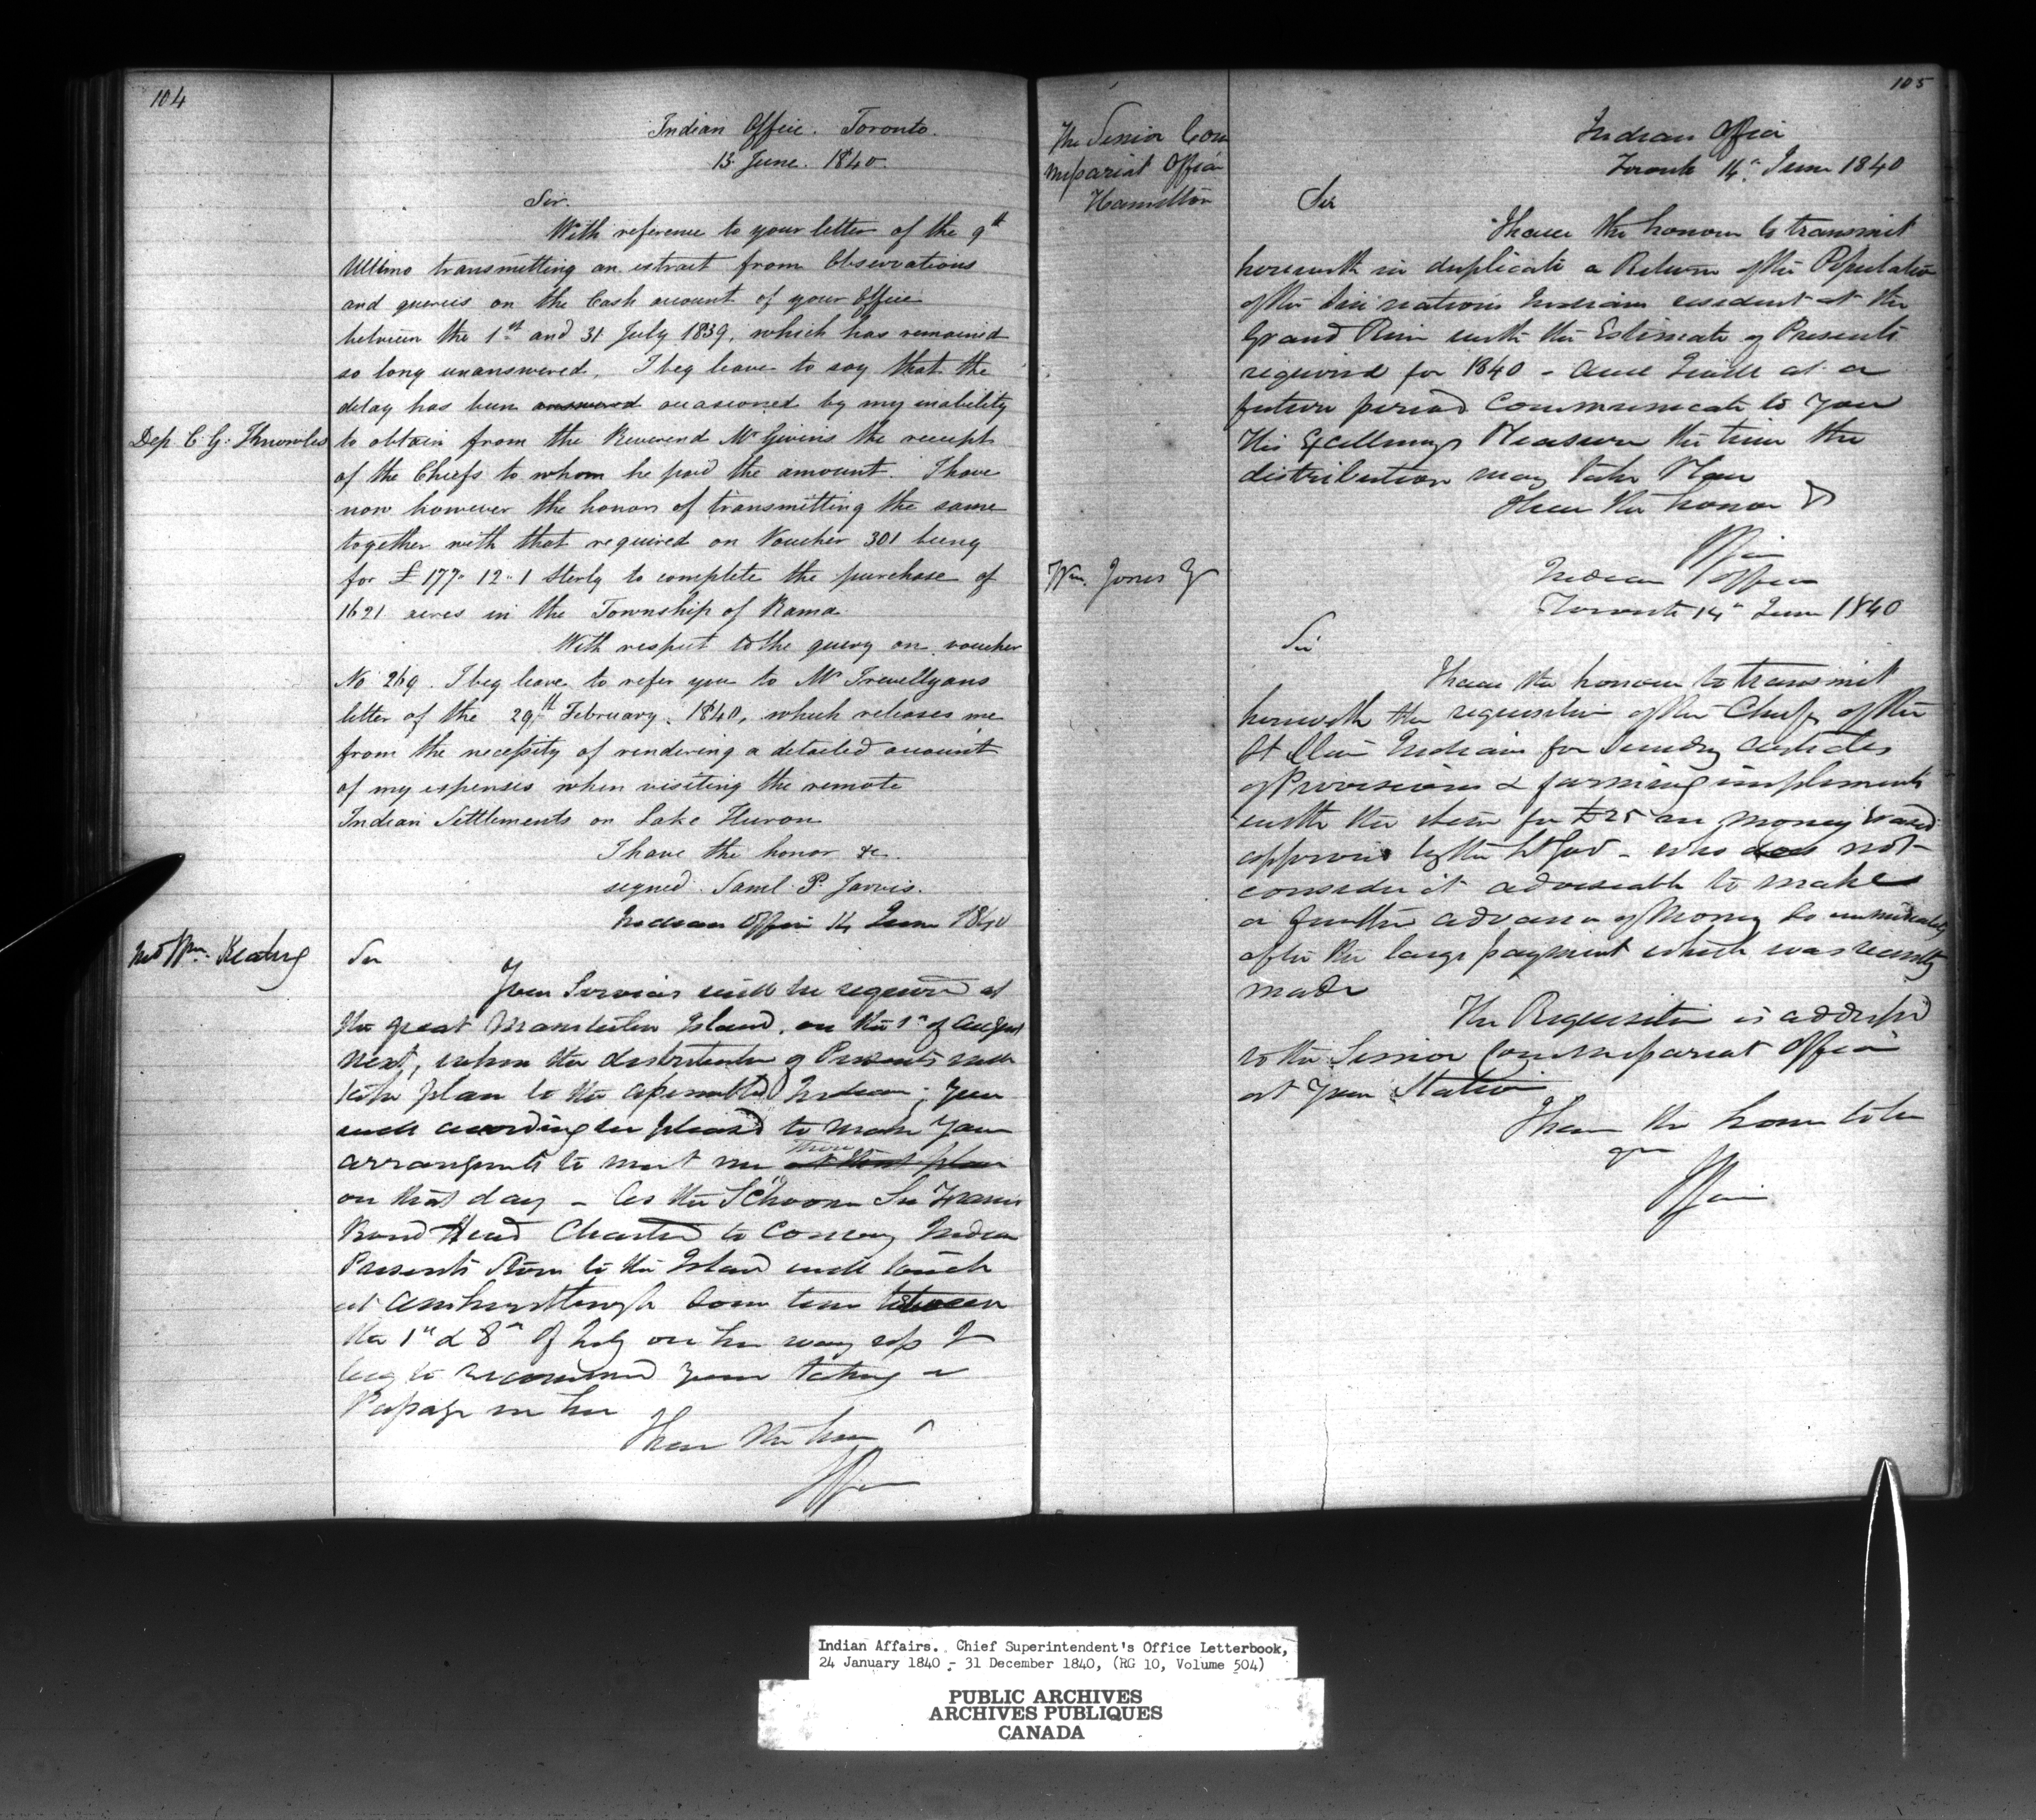 104
Indian Office. Toronto.
13 June. 1840.
Sir.
With reference to your letter of the 9th
Ultimo transmitting an extract from Observations
and queries on the Cash account of your Office
between the 1st and 31 July 1839, which has remained
so long unanswered, I beg leave to say that the
delay has been answered occasioned by my inability
Dep. C. G. Knowles
to obtain from the Reverend Mr Givins the receipt
of the Chiefs to whom he paid the amount. I have
now however the honor of transmitting the same
together with that required on Voucher 301 being
for £177" 12" 1 Sterlg to complete the purchase of
1621 acres in the Township of Rama
With respect to the query on voucher
No 269. I beg leave to refer you to Mr Trevellyans
letter of the 29th February. 1840, which releases me
from the necessity of rendering a detailed account
of my expenses when visiting the remote
Indian Settlements on Lake Huron
I have the honor &c.
signed. Saml. P. Jarvis.
Indian Office 14 June 1840
Wm. Keating
Sir
Your Services will be required at
the great Manitoulin Island, on the 1st of August
next, when the distribution of Presents will
take place to the assembled Indians; you
will accordingly be pleased to make your
arrangements to meet me there at that place
on that day - As the Schooner Sir Francis
Bond Head Charted to Convey Indian
Presents Stores to the Island will touch
at Amherstburgh some time between
the 1st & 8th of July on her way up I
beg to recommend your taking a
Passage in her
I have the honor
105
The Senior Com
missariat Officer
Hamilton
Indian Office
Toronto 14th June 1840
Sir
I have the honour to transmit
herewith in duplicate a Return of the Population
of the Six nations Indians resident at the
Grand River with the Estimate of Presents
required for 1840 - and I will at a
future period Communicate to you
His Excellency's Pleasure the time the
distribution may take Place
I have the honor &
Wm. Jones
Indian Office
Toronto 14th June 1840
Sir
I have the honour to transmit
herewith the requisition of the Chiefs of the
St Clair Indians for Sundry articles
of Provisions & farming implements
with the item for £25 in money
approved by the Lt Gov - who does not
consider it adviseable to make
a further advance of Money so immediately
after the large payment which was recently
made
The Requisition is addressed
to the Senior Commissariat Officer
at your Station
I have the honor to be
Indian Affairs. Chief Superintendent's Office Letterbook,
24 January 1840 - 31 December 1840, (RG 10, Volume 504)
PUBLIC ARCHIVES
ARCHIVES PUBLIQUES
CANADA